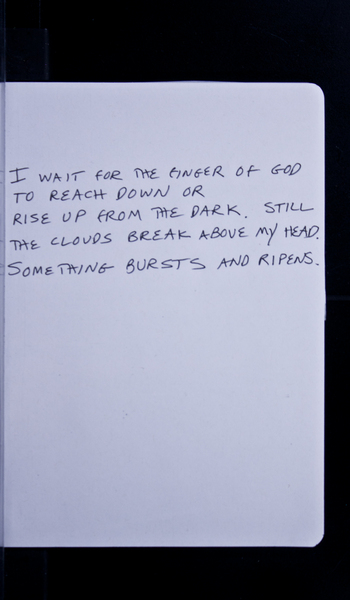 I WAIT FOR THE FINGER OF GOD
TO REACH DOWN OR
RISE UP FROM THE DARK. STILL
THE CLOUDS BREAK ABOVE MY HEAD.
SOMETHING BURSTS AND RIPENS.